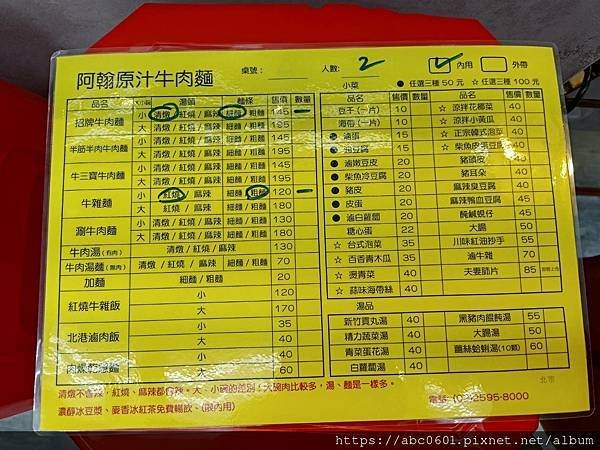 阿翰原汁牛肉麵 桌號: 人數: 2 ✓ 內用 外帶
小菜 ● 任選三種 50 元 ☆ 任選三種 100 元
品名 大小碗 湯頭 麵條 售價 數量
招牌牛肉麵 小 清燉/紅燒/麻辣 細麵/粗麵 145 一
大 清燉/紅燒/麻辣 細麵/粗麵 195
半筋半肉牛肉麵 小 清燉/紅燒/麻辣 細麵/粗麵 145
大 清燉/紅燒/麻辣 細麵/粗麵 195
牛三寶牛肉麵 小 清燉/紅燒/麻辣 細麵/粗麵 145
大 清燉/紅燒/麻辣 細麵/粗麵 195
牛雜麵 小 紅燒/麻辣 細麵/粗麵 120 一
大 紅燒/麻辣 細麵/粗麵 180
涮牛肉麵 小 清燉/紅燒/麻辣 細麵/粗麵 130
大 清燉/紅燒/麻辣 細麵/粗麵 180
牛肉湯(有肉) 清燉/紅燒/麻辣 130
牛肉湯麵(無肉) 清燉/紅燒/麻辣 細麵/粗麵 70
加麵 細麵/粗麵 20
紅燒牛雜飯 小 120
大 170
北港滷肉飯 小 35
大 40
小 40
大 60
清燉不含辣,紅燒、麻辣都有辣。大、小碗的差別:大碗肉比較多,湯、麵是一樣多。
濃醇冰豆漿、麥香冰紅茶免費暢飲、(限內用)
品名 售價 數量 品名 售價 數量
豆干(一片) 10 ☆ 涼拌花椰菜 40
海帶(一片) 10 ☆ 涼拌小黃瓜 40
● 滷蛋 15 ☆ 正宗韓式泡菜 40
● 滷豆腐 15 ☆ 柴魚皮蛋豆腐 40
● 滷嫩豆皮 20 豬頭皮 40
● 柴魚冷豆腐 20 豬耳朵 40
● 豬皮 20 麻辣臭豆腐 40
● 皮蛋 20 麻辣鴨血豆腐 45
● 滷白蘿蔔 20 醃鹹蜆仔 45
糖心蛋 22 大腸 50
☆ 台式泡菜 35 川味紅油抄手 55
☆ 百香青木瓜 35 滷牛雜 70
☆ 燙青菜 40 夫妻肺片 85
☆ 蒜味海帶絲 40
湯品
新竹貢丸湯 40 黑豬肉餛飩湯 55
精力蔬菜湯 40 大腸湯 50
青菜蛋花湯 40 薑絲蛤蜊湯(10顆) 60
白蘿蔔湯 40
北市
電話:(02)2595-8000
https://abc0601.pixnet.net/album